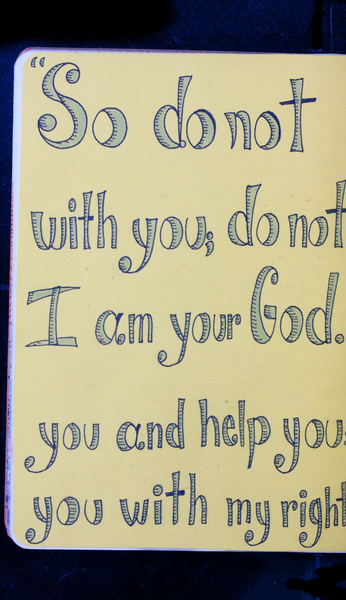 “So do not
with you; do not
I am your God.
you and help you
you with my right